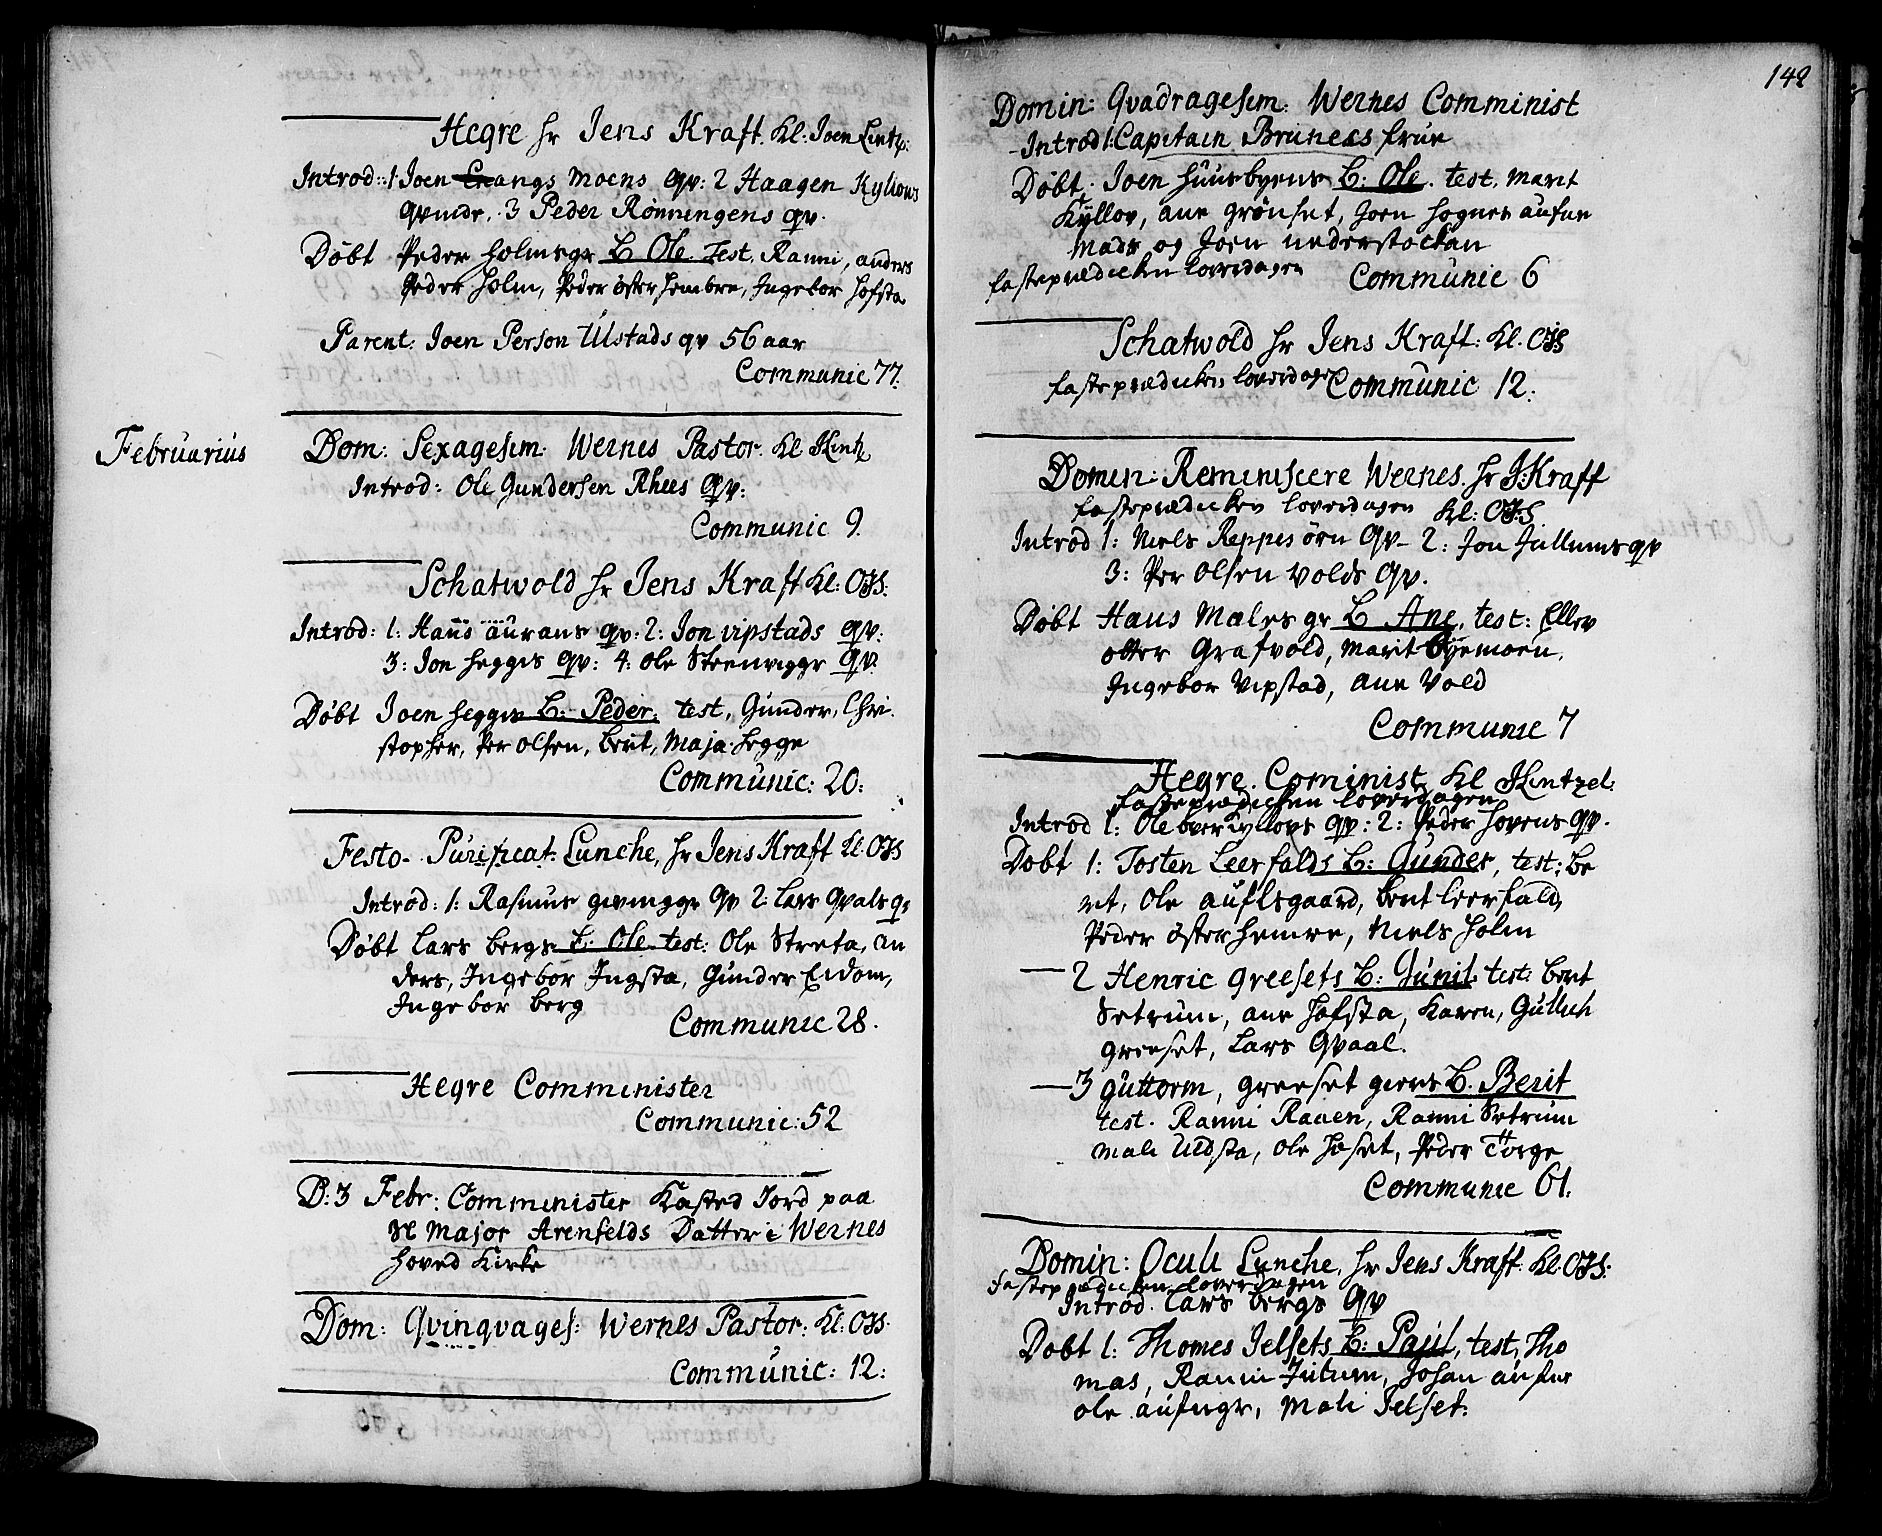 Hegre hr Jens Kraft. Kl. Joen Lintz:
Introd:: 1 Joen angs moens qv: 2 Haagen Kyllous
qvinde. 3 Peder Rønningens qv.
Døbt Peder holms gr B Ole. Test. Ranni, anders
Peder holm, Peder østerhembre, Ingebor hofsta
Parent: Joen Person Ulstads qv 56 aar
Communic 77.
Februarius
Dom: Sexagesim: Wernes Pastor. Kl Hintz
Introd: Ole Gundersen Rhees qv:
Communic 9.
Schatwold hr Jens Kraft Kl: OJS.
Introd: 1: Hans aurans qv: 2: Jon vipstads qv:
3: Jon hegges qv: 4: ole Steenvigge qv.
Døbt Joen hegges B: Peder: test, Gunder, Chri-
stopher, Per olsen, berit, Maja hegge
Communic: 20:
Festo- Purificat: Lunche, hr Jens Kraft Kl. OJS
Introd: 1: Rasmus gevingge qv 2: Lars qvals qv
Døbt Lars bergs B: Ole test: Ole Streta, an
ders, Ingebor Ingsta, Gunder Eidom,
Ingebor berg
Communic 28.
Hegre Comminister
Communic: 52
D: 3 Febr: Comminister Kasted Jord paa
Sl Major Arenfelds Datter i Wernes
hoved Kirke
Dom: Qvinqvages: Wernes Pastor: Kl: OJS.
Communic: 12:
142
Domin: Qvadragesim: Wernes Comminist
Introd 1: Capitain Bruneces frue
Døbt. Joen huusbyens B: Ole. test. Marit
Kyllov, ane grönset, Joen hognes aufne
Mads og Joen nederstockan
fasteprædicken löverdagen Communic 6
Schatwold hr Jens Kraft: Kl. OJS
fasteprædicken löverdagen Communic 12:
Domin: Reminiscere Wernes. hr J: Kraff
fasteprædicken löverdagen Kl: OJS.
Introd 1: Niels Reppes örn qv- 2: Jon Jullums qv
3: Per olsen volds qv.
Døbt Hans Mæles gr B Ane, test: Ellev
otter Grafvold, Marit byemoen,
Ingebor Vipstad, ane Vold
Communic 7
Hegre. Cominist. Kl Hintzel:
fasteprædicken löverdagen
Introd 1: Ole överkyllovs qv: 2: Peder hovens qv.
Døbt 1: Tosten Leerfalds B: Gunder, test: Be
rit, Ole auflsgaard, berit leerfald,
Peder österhemre, Niels holm
2 Henric greesets B: Gunil test: berit
Setrum, ane hofsta, Karen, Gulluh
greeset, Lars Qvaal.
3 guttorm, greeset giers B. Berit
test. Ranni Raaen, Ranni Setrum
mali Uldsta, ole haset, Peder Torge
Communic 61.
Domin: Oculi Lunche, hr Jens Kraft. Kl. OJS:
fasteprædicken löverdagen
Introd. Lars bergs qv
Døbt 1: Thomes Jelsets B: Paul, test, Tho
mas, Ranni Jutum, Johan aufne
ole aufnge, Mali Jelset.